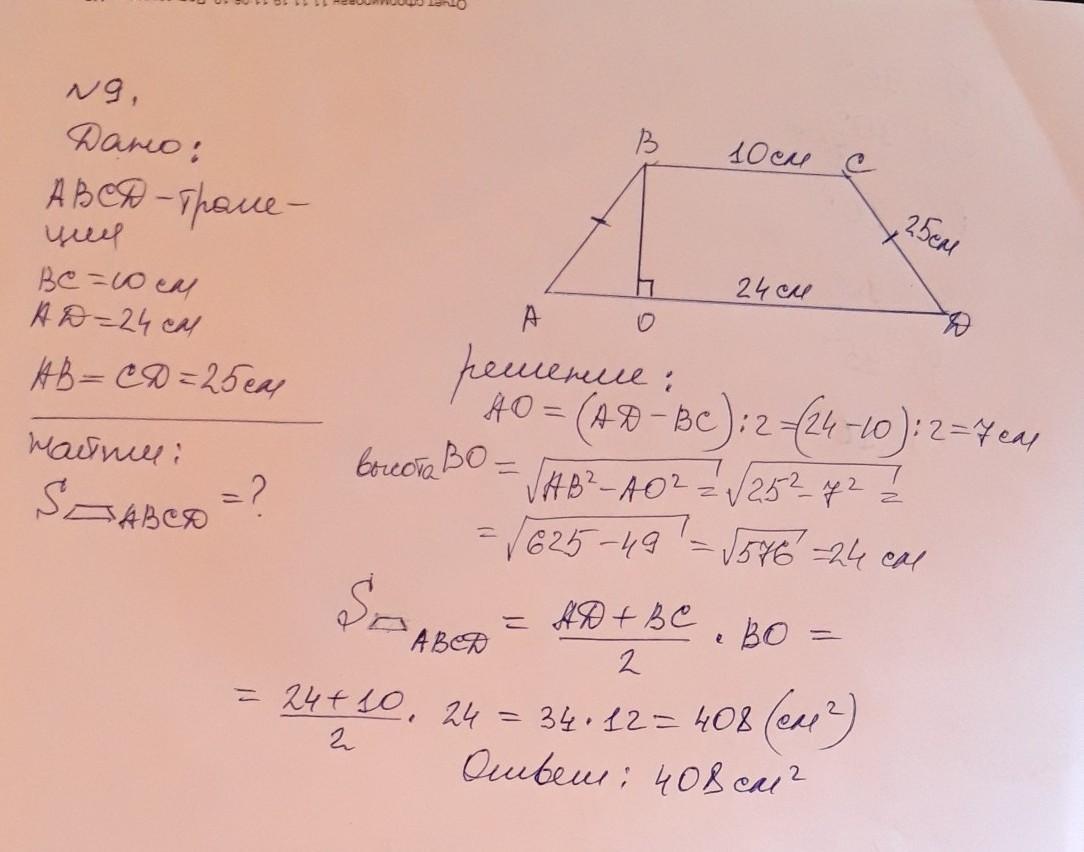 №9.
Дано:
ABCD - трапе-
ция
BC = 10 см
AD = 24 см
AB = CD = 25 см
Найти:
S⏢ABCD = ?
B 10 см C
25 см
24 см
A O D
решение:
AO = (AD - BC) : 2 = (24 - 10) : 2 = 7 см
высота BO = √AB² - AO² = √25² - 7² =
= √625 - 49 = √576 = 24 см
S⏢ABCD = AD + BC / 2 · BO =
= 24 + 10 / 2 · 24 = 34 · 12 = 408 (см²)
Ответ: 408 см²